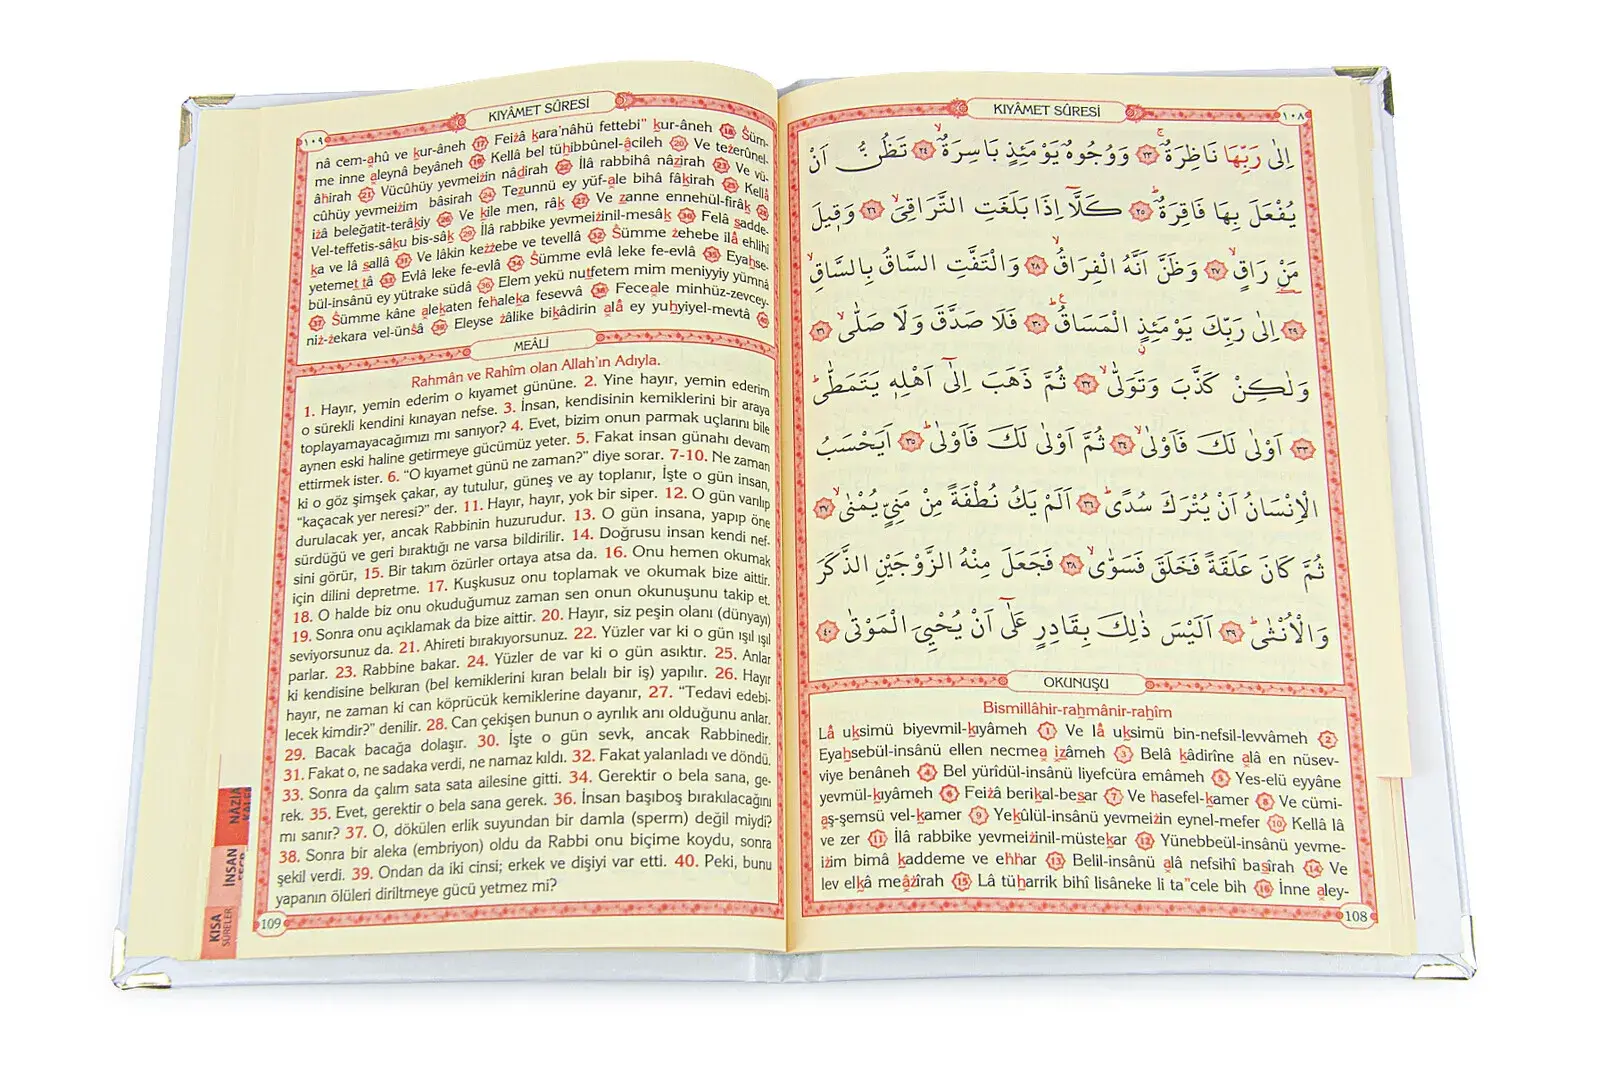 KIYÂMET SÛRESİ
١٠٨
اِلٰى رَبِّهَا نَاظِرَةٌۚ ﴿٢٣﴾ وَوُجُوهٌ يَوْمَئِذٍ بَاسِرَةٌۙ ﴿٢٤﴾ تَظُنُّ اَنْ
يُفْعَلَ بِهَا فَاقِرَةٌۜ ﴿٢٥﴾ كَلَّٓا اِذَا بَلَغَتِ التَّرَاقِيَۙ ﴿٢٦﴾ وَق۪يلَ
مَنْ رَاقٍۙ ﴿٢٧﴾ وَظَنَّ اَنَّهُ الْفِرَاقُۙ ﴿٢٨﴾ وَالْتَفَّتِ السَّاقُ بِالسَّاقِۙ
﴿٢٩﴾ اِلٰى رَبِّكَ يَوْمَئِذٍ الْمَسَاقُۜ ﴿٣٠﴾ فَلَا صَدَّقَ وَلَا صَلّٰىۙ ﴿٣١﴾
وَلٰكِنْ كَذَّبَ وَتَوَلّٰىۙ ﴿٣٢﴾ ثُمَّ ذَهَبَ اِلٰٓى اَهْلِه۪ يَتَمَطّٰىۜ
﴿٣٣﴾ اَوْلٰى لَكَ فَاَوْلٰىۙ ﴿٣٤﴾ ثُمَّ اَوْلٰى لَكَ فَاَوْلٰىۜ ﴿٣٥﴾ اَيَحْسَبُ
الْاِنْسَانُ اَنْ يُتْرَكَ سُدًىۜ ﴿٣٦﴾ اَلَمْ يَكُ نُطْفَةً مِنْ مَنِيٍّ يُمْنٰىۙ ﴿٣٧﴾
ثُمَّ كَانَ عَلَقَةً فَخَلَقَ فَسَوّٰىۙ ﴿٣٨﴾ فَجَعَلَ مِنْهُ الزَّوْجَيْنِ الذَّكَرَ
وَالْاُنْثٰىۜ ﴿٣٩﴾ اَلَيْسَ ذٰلِكَ بِقَادِرٍ عَلٰٓى اَنْ يُحْيِيَ الْمَوْتٰى ﴿٤٠﴾
OKUNUŞU
Bismillâhir-rahmânir-rahîm
Lâ uksimü biyevmil-kıyâmeh 1 Ve lâ uksimü bin-nefsil-levvâmeh 2
Eyahsebül-insânü ellen necmea ızâmeh 3 Belâ kâdirîne alâ en nüsev-
viye benâneh 4 Bel yürîdül-insânü liyefcüra emâmeh 5 Yes-elü eyyâne
yevmül-kıyâmeh 6 Feiżâ berikal-besar 7 Ve hasefel-kamer 8 Ve cümi-
aş-şemsü vel-kamer 9 Yekûlül-insânü yevmeiżin eynel-mefer 10 Kellâ lâ
ve zer 11 İlâ rabbike yevmeiżinil-müstekar 12 Yünebbeül-insânü yevme-
iżim bimâ kaddeme ve ehhar 13 Belil-insânü alâ nefsihî basîrah 14 Ve
lev elkâ meâżîrah 15 Lâ tüharrik bihî lisâneke li ta"cele bih 16 İnne aley-
108
KIYÂMET SÛRESİ
١٠٩
nâ cem-ahû ve kur-âneh 17 Feiżâ kara'nâhü fettebi" kur-âneh 18 Śüm-
me inne aleynâ beyâneh 19 Kellâ bel tühibbûnel-âcileh 20 Ve teżerûnel-
âhirah 21 Vücûhüy yevmeiżin nâdirah 22 İlâ rabbihâ nâzirah 23 Ve vü-
cûhüy yevmeiżim bâsirah 24 Tezunnü ey yüf-ale bihâ fâkirah 25 Kellâ
iżâ beleğatit-terâkıy 26 Ve kile men, râk 27 Ve zanne ennehül-firâk 28
Vel-teffetis-sâku bis-sâk 29 İlâ rabbike yevmeiżinil-mesâk 30 Felâ sadde-
ka ve lâ sallâ 31 Ve lâkin keżżebe ve tevellâ 32 Śümme żehebe ilâ ehlihî
yetemettâ 33 Evlâ leke fe-evlâ 34 Śümme evlâ leke fe-evlâ 35 Eyahse-
bül-insânü ey yütrake südâ 36 Elem yekü nutfetem mim meniyyiy yümnâ
37 Śümme kâne alekaten fehaleka fesevvâ 38 Feceale minhüz-zevcey-
niż-żekara vel-ünśâ 39 Eleyse żâlike bikâdirin alâ ey yuhyiyel-mevtâ 40
MEÂLİ
Rahmân ve Rahîm olan Allah'ın Adıyla.
1. Hayır, yemin ederim o kıyamet gününe. 2. Yine hayır, yemin ederim
o sürekli kendini kınayan nefse. 3. İnsan, kendisinin kemiklerini bir araya
toplayamayacağımızı mı sanıyor? 4. Evet, bizim onun parmak uçlarını bile
aynen eski haline getirmeye gücümüz yeter. 5. Fakat insan günahı devam
ettirmek ister. 6. "O kıyamet günü ne zaman?" diye sorar. 7-10. Ne zaman
ki o göz şimşek çakar, ay tutulur, güneş ve ay toplanır, İşte o gün insan,
"kaçacak yer neresi?" der. 11. Hayır, hayır, yok bir siper. 12. O gün varılıp
durulacak yer, ancak Rabbinin huzurudur. 13. O gün insana, yapıp öne
sürdüğü ve geri bıraktığı ne varsa bildirilir. 14. Doğrusu insan kendi nef-
sini görür, 15. Bir takım özürler ortaya atsa da. 16. Onu hemen okumak
için dilini depretme. 17. Kuşkusuz onu toplamak ve okumak bize aittir.
18. O halde biz onu okuduğumuz zaman sen onun okunuşunu takip et.
19. Sonra onu açıklamak da bize aittir. 20. Hayır, siz peşin olanı (dünyayı)
seviyorsunuz da. 21. Ahireti bırakıyorsunuz. 22. Yüzler var ki o gün ışıl ışıl
parlar. 23. Rabbine bakar. 24. Yüzler de var ki o gün asıktır. 25. Anlar
ki kendisine belkıran (bel kemiklerini kıran belalı bir iş) yapılır. 26. Hayır
hayır, ne zaman ki can köprücük kemiklerine dayanır, 27. "Tedavi edebi-
lecek kimdir?" denilir. 28. Can çekişen bunun o ayrılık anı olduğunu anlar.
29. Bacak bacağa dolaşır. 30. İşte o gün sevk, ancak Rabbinedir.
31. Fakat o, ne sadaka verdi, ne namaz kıldı. 32. Fakat yalanladı ve döndü.
33. Sonra da çalım sata sata ailesine gitti. 34. Gerektir o bela sana, ge-
rek. 35. Evet, gerektir o bela sana gerek. 36. İnsan başıboş bırakılacağını
mı sanır? 37. O, dökülen erlik suyundan bir damla (sperm) değil miydi?
38. Sonra bir aleka (embriyon) oldu da Rabbi onu biçime koydu, sonra
şekil verdi. 39. Ondan da iki cinsi; erkek ve dişiyi var etti. 40. Peki, bunu
yapanın ölüleri diriltmeye gücü yetmez mi?
109
İNSAN
KISA
SÛRELER